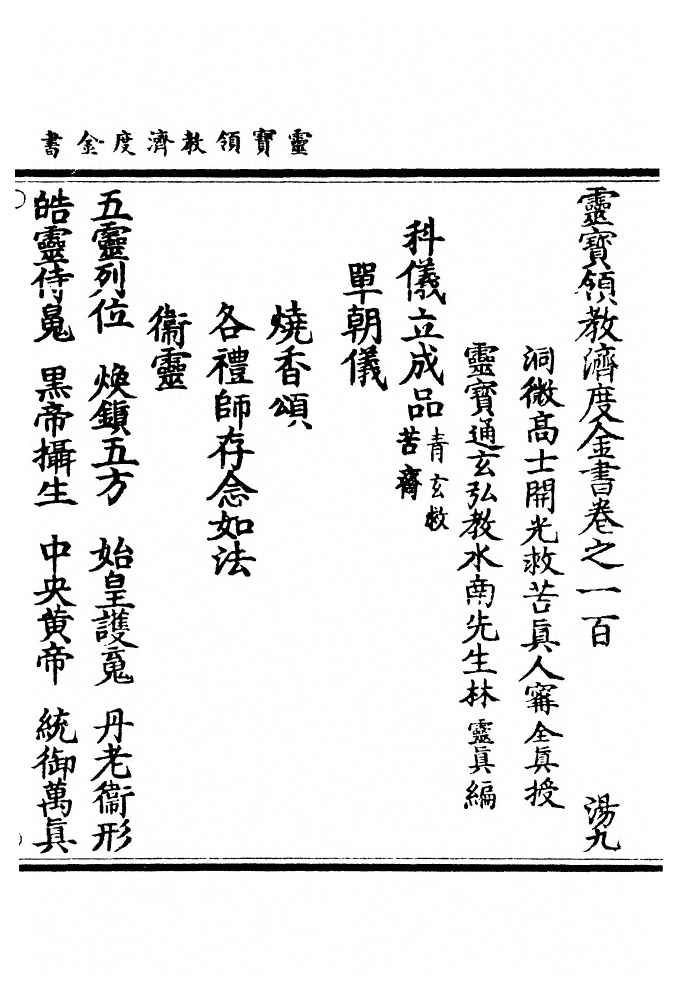 靈寶領教濟度金書
靈寶領教濟度金書卷之一百 湯九
洞微高士開光救苦眞人寗全眞授
靈寶通玄弘教水南先生林靈眞編
科儀立成品青玄救苦齋
單朝儀
燒香頌
各禮師存念如法
衞靈
五靈列位 煥鎖五方 始皇護䰟 丹老衞形
皓靈侍䰟 黒帝攝生 中央黄帝 統御萬眞